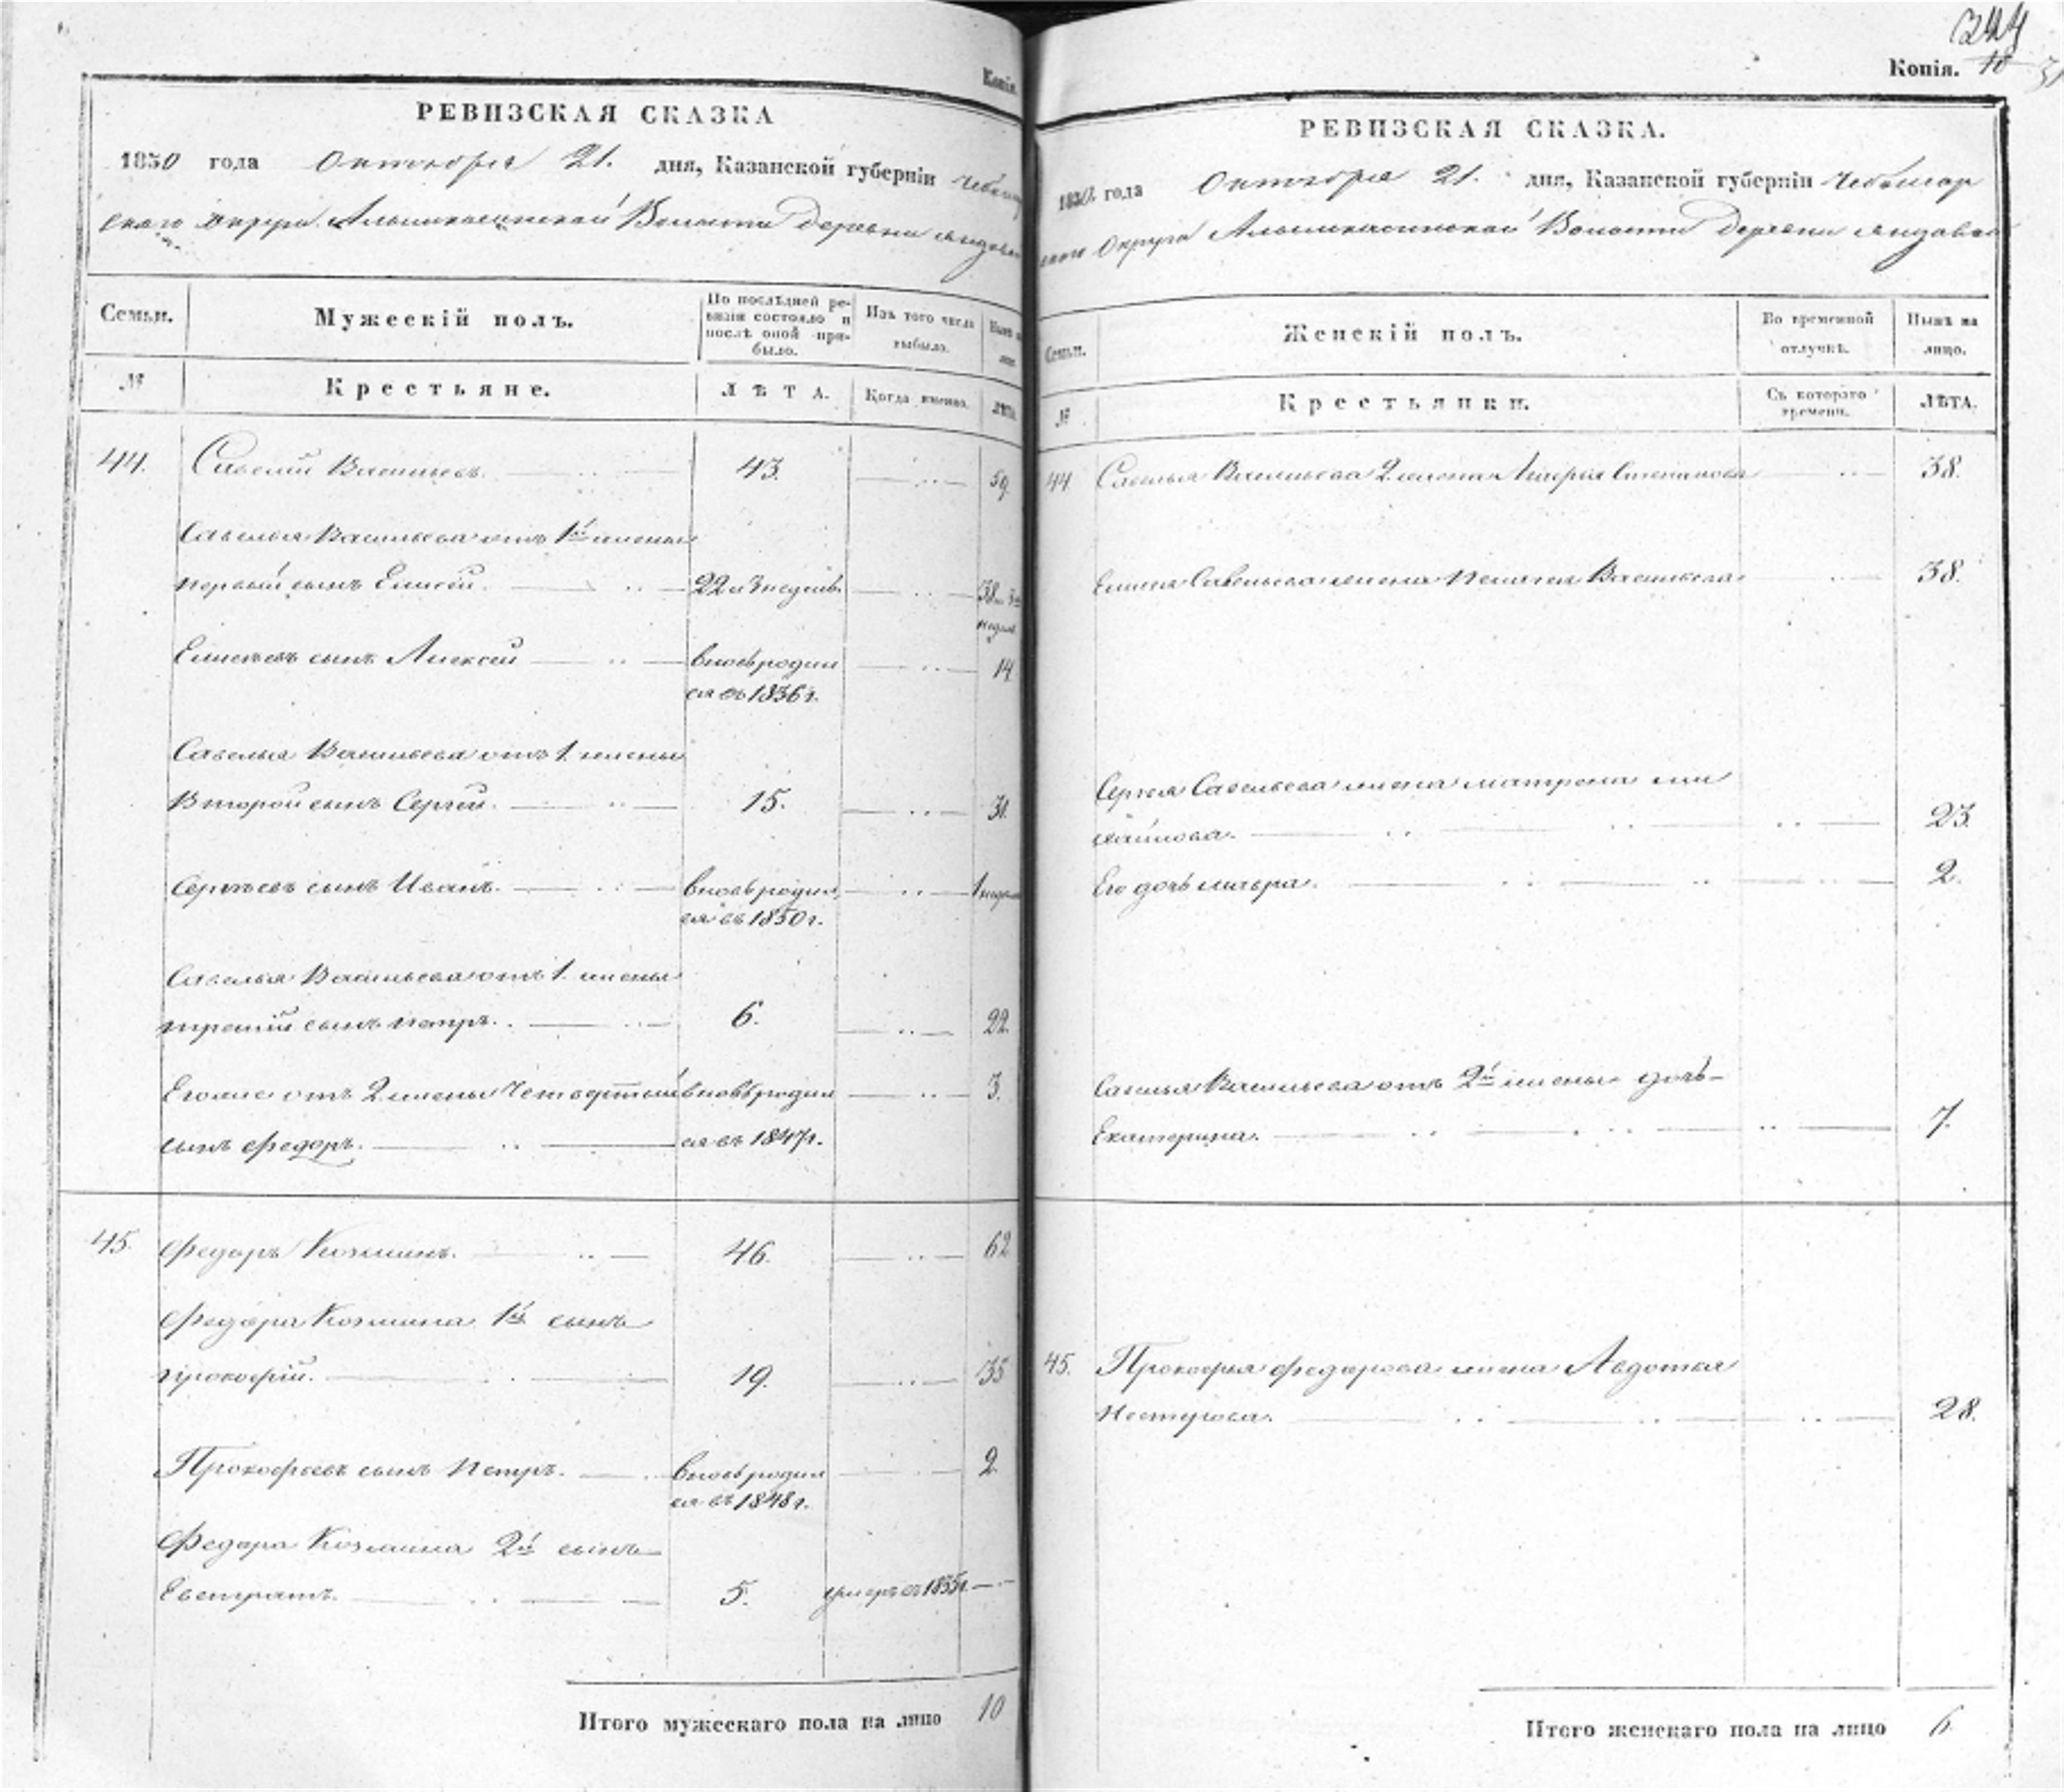 Копія.
РЕВИЗСКАЯ СКАЗКА
1850 года Октября 21. дня, Казанской губерніи Чебоксар
скаго округа Волости Деревни
Семьи.
Мужескій полъ.
По послѣдней ре-
визіи состояло и
послѣ оной при-
было.
Изъ того числа
выбыло.
Нынѣ на
лицо.
№
Крестьяне.
ЛѢТА.
Когда именно.
ЛѢТА.
44. Савелій Васильевъ. 43. 59.
Савелья Васильева отъ 1й жены
первый сынъ Елисей. 22 и 3 недѣль 38 и 3
недѣль
Елисеевъ сынъ Алексей вновь родил 14
ся въ 1836 г.
Савелья Васильева отъ 1 жены
Второй сынъ Сергей. 15. 31.
Сергѣевъ сынъ Иванъ. вновь родил 1 недѣля
ся въ 1850 г.
Савелья Васильева отъ 1. жены
третий сынъ петръ. 6. 22.
Егоже от 2 жены Четвертый вновь родил 3.
сынъ Федоръ. ся въ 1847 г.
45. Федоръ Козминъ. 46. 62
Федора Козмина 1й сынъ
прокофий. 19. 35
Прокофьевъ сынъ Петръ. вновь родил 2
ся въ 1848 г.
Федора Козмина 2й сынъ
Евстратъ. 5. умеръ въ 1835 г.
Итого мужескаго пола на лицо 10
344
Копія. 10
РЕВИЗСКАЯ СКАЗКА.
1850 года Октября 21. дня, Казанской губерніи Чебоксар
скаго Округа Волости Деревни
Семьи.
Женскій полъ.
Во временной
отлучкѣ.
Нынѣ на
лицо.
№
Крестьянки.
Съ котораго
времени.
ЛѢТА.
44 Савелья Васильева 2 жена Степанова 38.
Елисея Савельева жена Пелагея Васильева 38.
Сергея Савельева жена матрена ми
хайлова. 23.
Его дочь 2.
Савелья Васильева отъ 2й жены дочь
Екатерина. 7.
45. Прокофья Федорова жена Авдотья
Нестерова. 28.
Итого женскаго пола на лицо 6